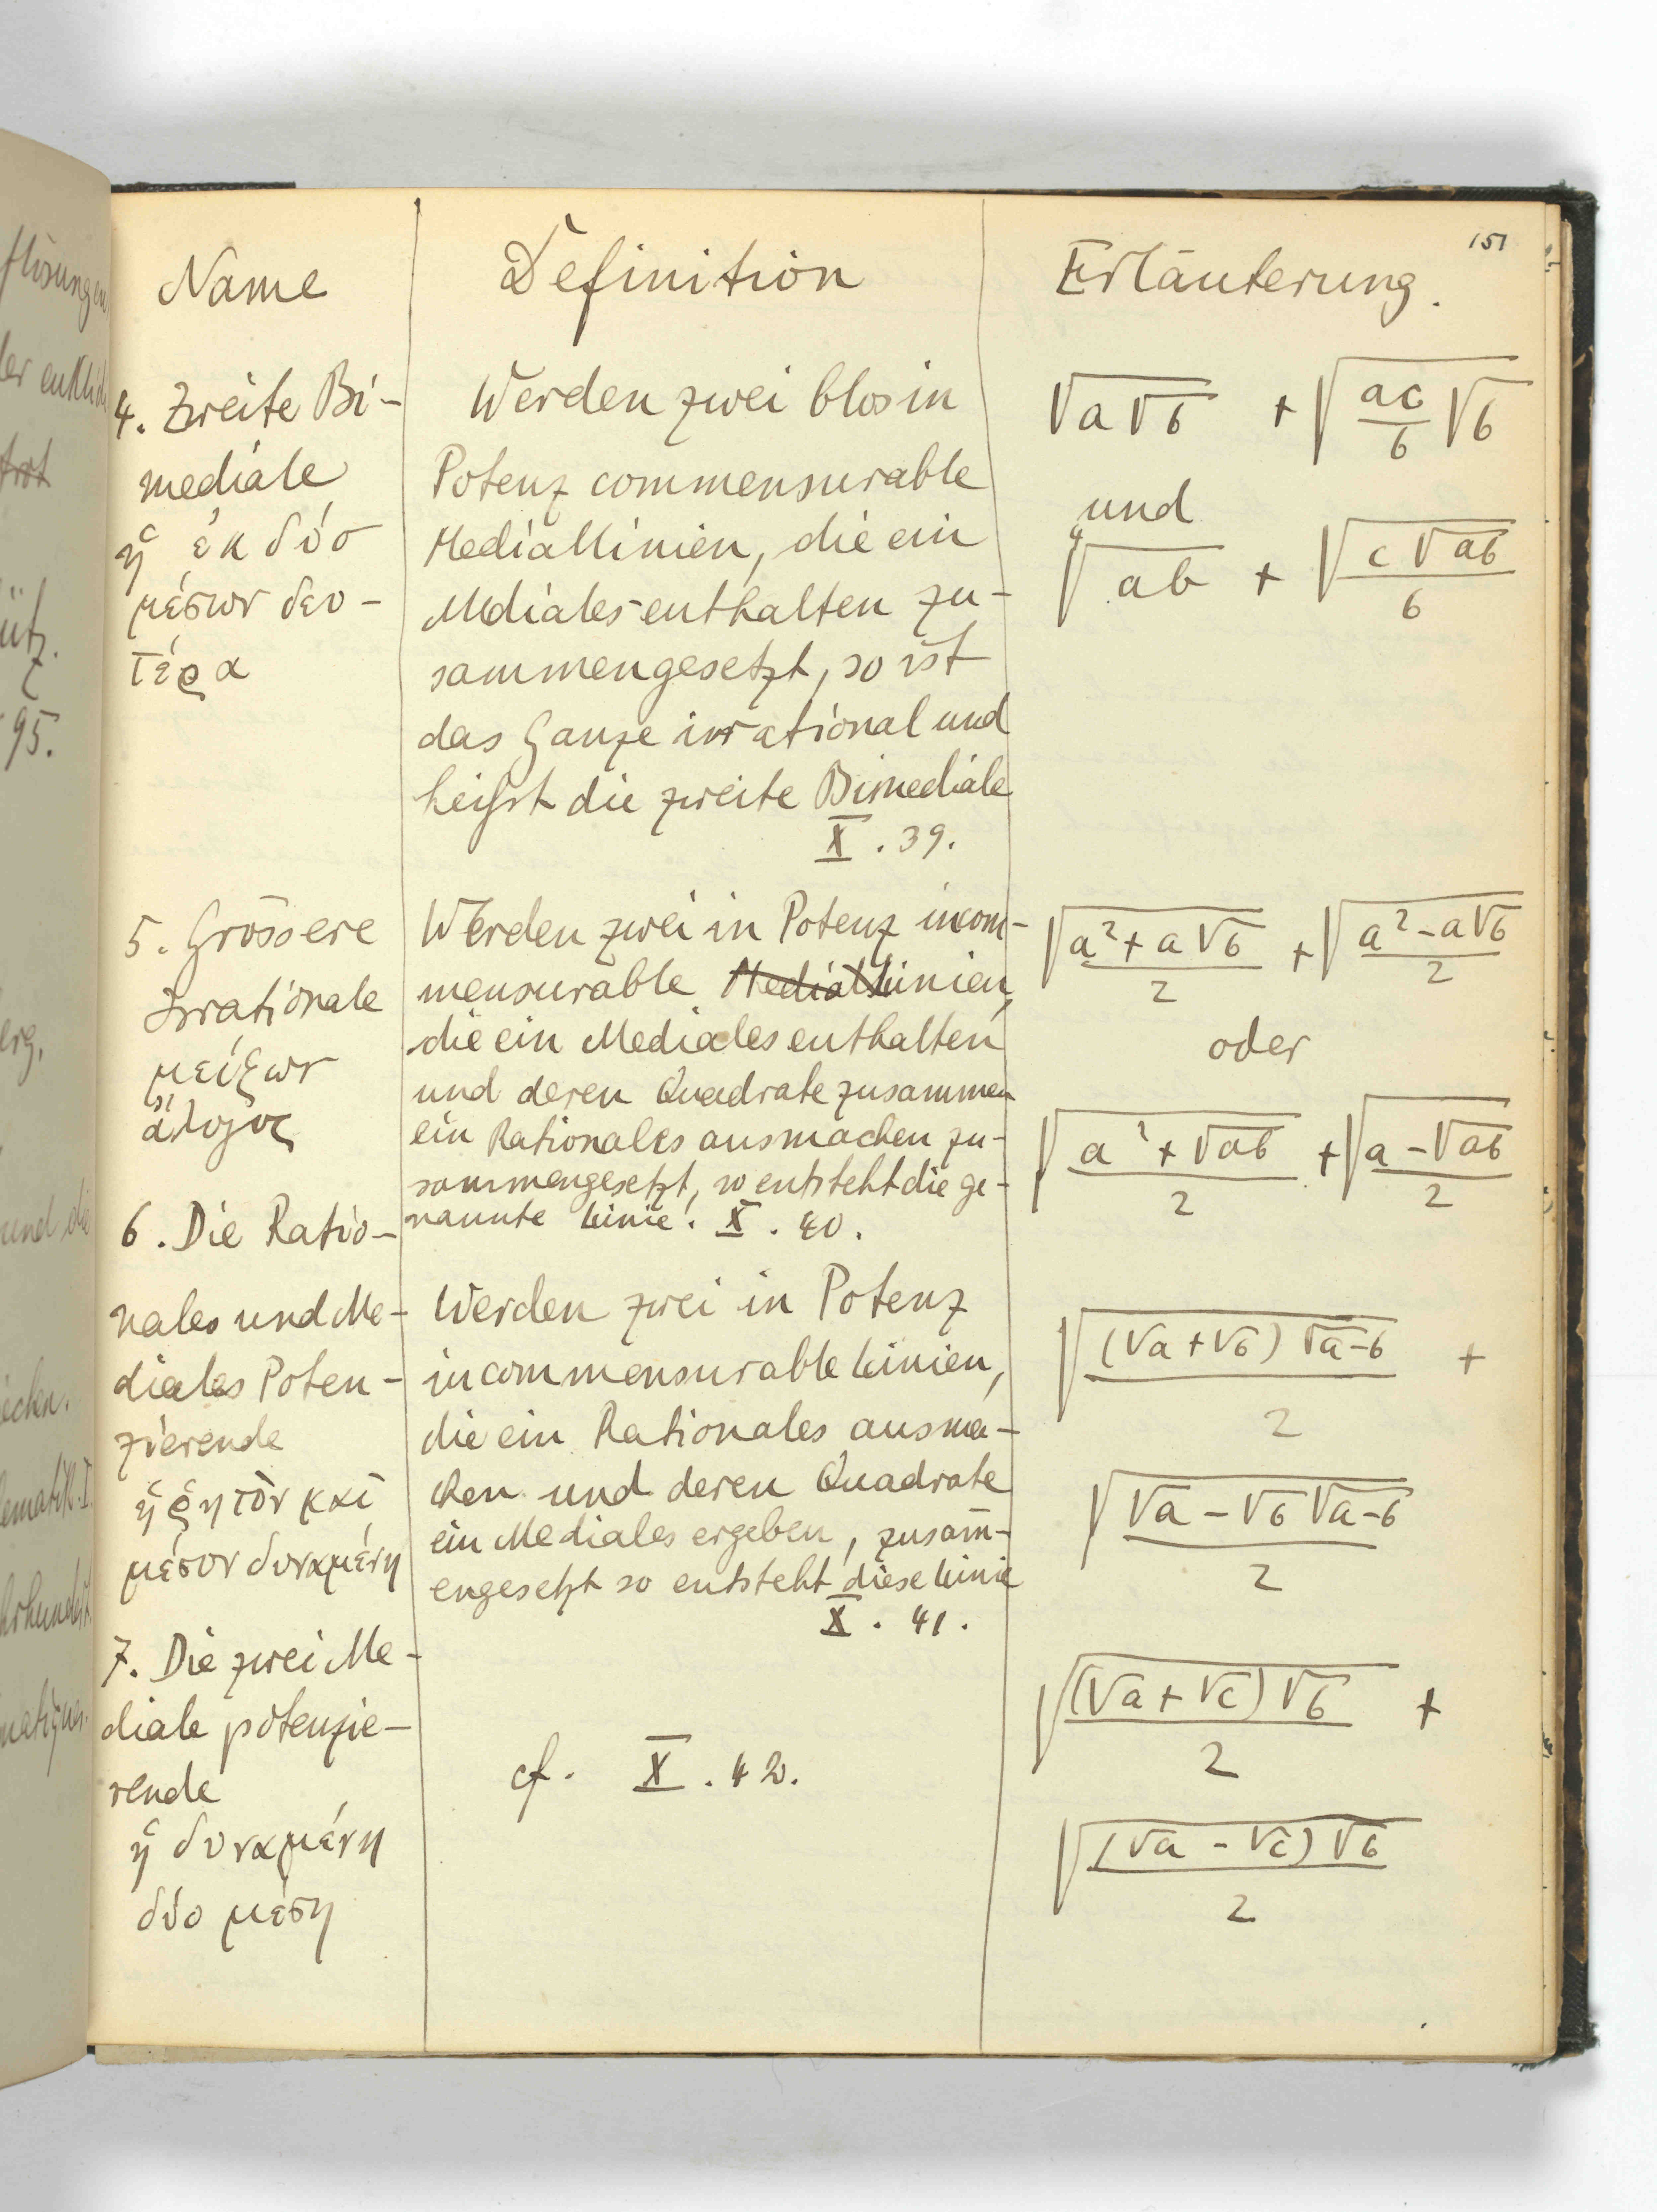 151
Name
Definition
Erläuterung.
4. Zweite Bi-
mediale
ἡ ἐκ δύο
μέσων δευ-
τέρα
Werden zwei blos in
Potenz commensurable
Mediallinien, die ein
Mediales enthalten zu-
sammengesetzt, so ist
das Ganze irrational und
heisst die zweite Bimediale
X. 39.
√(a√b) + √(ac/b √b)
und
∜(ab) + √(c√ab / b)
5. Grössere
Irrationale
μείζων
ἄλογος
Werden zwei in Potenz incom-
mensurable Mediallinien,
die ein Mediales enthalten
und deren Quadrate zusammen
ein Rationales ausmachen zu-
sammengesetzt, so entsteht die ge-
nannte Linie. X. 40.
√((a²+a√b)/2) + √((a²-a√b)/2)
oder
√((a²+√ab)/2) + √((a-√ab)/2)
6. Die Ratio-
nales und Me-
diales Poten-
zierende
ἡ ῥητὸν καὶ
μέσον δυναμένη
Werden zwei in Potenz
incommensurable Linien,
die ein Rationales ausma-
chen und deren Quadrate
ein Mediales ergeben, zusam̄-
engesetzt so entsteht diese Linie
X. 41.
√((√a+√b)√a-b / 2) +
√(√a-√b √a-b / 2)
7. Die zwei Me-
diale potenzie-
rende
ἡ δυναμένη
δύο μέση
cf. X. 42.
√((√a+√c)√b / 2) +
√((√a-√c)√b / 2)
flösungen
95.
erg.
und die